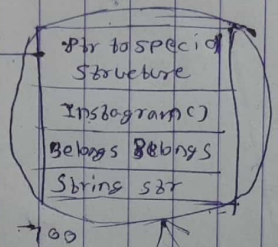 Ptr to Specia
Structure
Instagram()
Belongs Belongs
String str
100